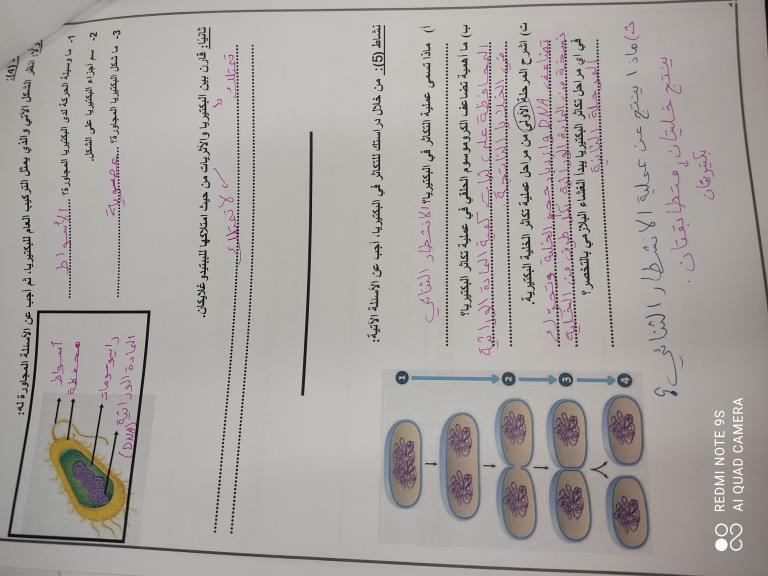 (4):
أولا: انظر الشكل الآتي والذي يمثل التركيب العام للبكتيريا، ثم أجب عن الأسئلة المجاورة له:
1- ما وسيلة الحركة لدى البكتيريا المجاورة؟ الأسواط
2- سم أجزاء البكتيريا على الشكل.
3- ما شكل البكتيريا المجاورة؟ عصوية
أسواط
محفظة
رايبوسومات
المادة الوراثية
(DNA)
ثانيا: قارن بين البكتيريا والأثريات من حيث امتلاكها للببتيدوغلايكان.
تمتلك لا تمتلك
نشاط (5): من خلال دراستك للتكاثر في البكتيريا، أجب عن الأسئلة الآتية:
أ) ماذا تسمى عملية التكاثر في البكتيريا؟ الانشطار الثنائي
ب) ما أهمية تضاعف الكروموسوم الحلقي في عملية تكاثر البكتيريا؟
المحافظة على ثبات كمية المادة الوراثية
في الخلايا الناتجة
ت) اشرح المرحلة الأولى من مراحل عملية تكاثر الخلية البكتيرية.
تضاعف DNA وازدياد حجم الخلية وتتحرك
نسخة من المادة الوراثية لكل طرف من الخلية
في أي مراحل تكاثر البكتيريا يبدأ الغشاء البلازمي بالتخصر؟
المرحلة الثانية
ث) ماذا ينتج عن عملية الانشطار الثنائي؟
ينتج خليتان متطابقتان.
بكتيريتان
1
2
3
4
REDMI NOTE 9S
AI QUAD CAMERA